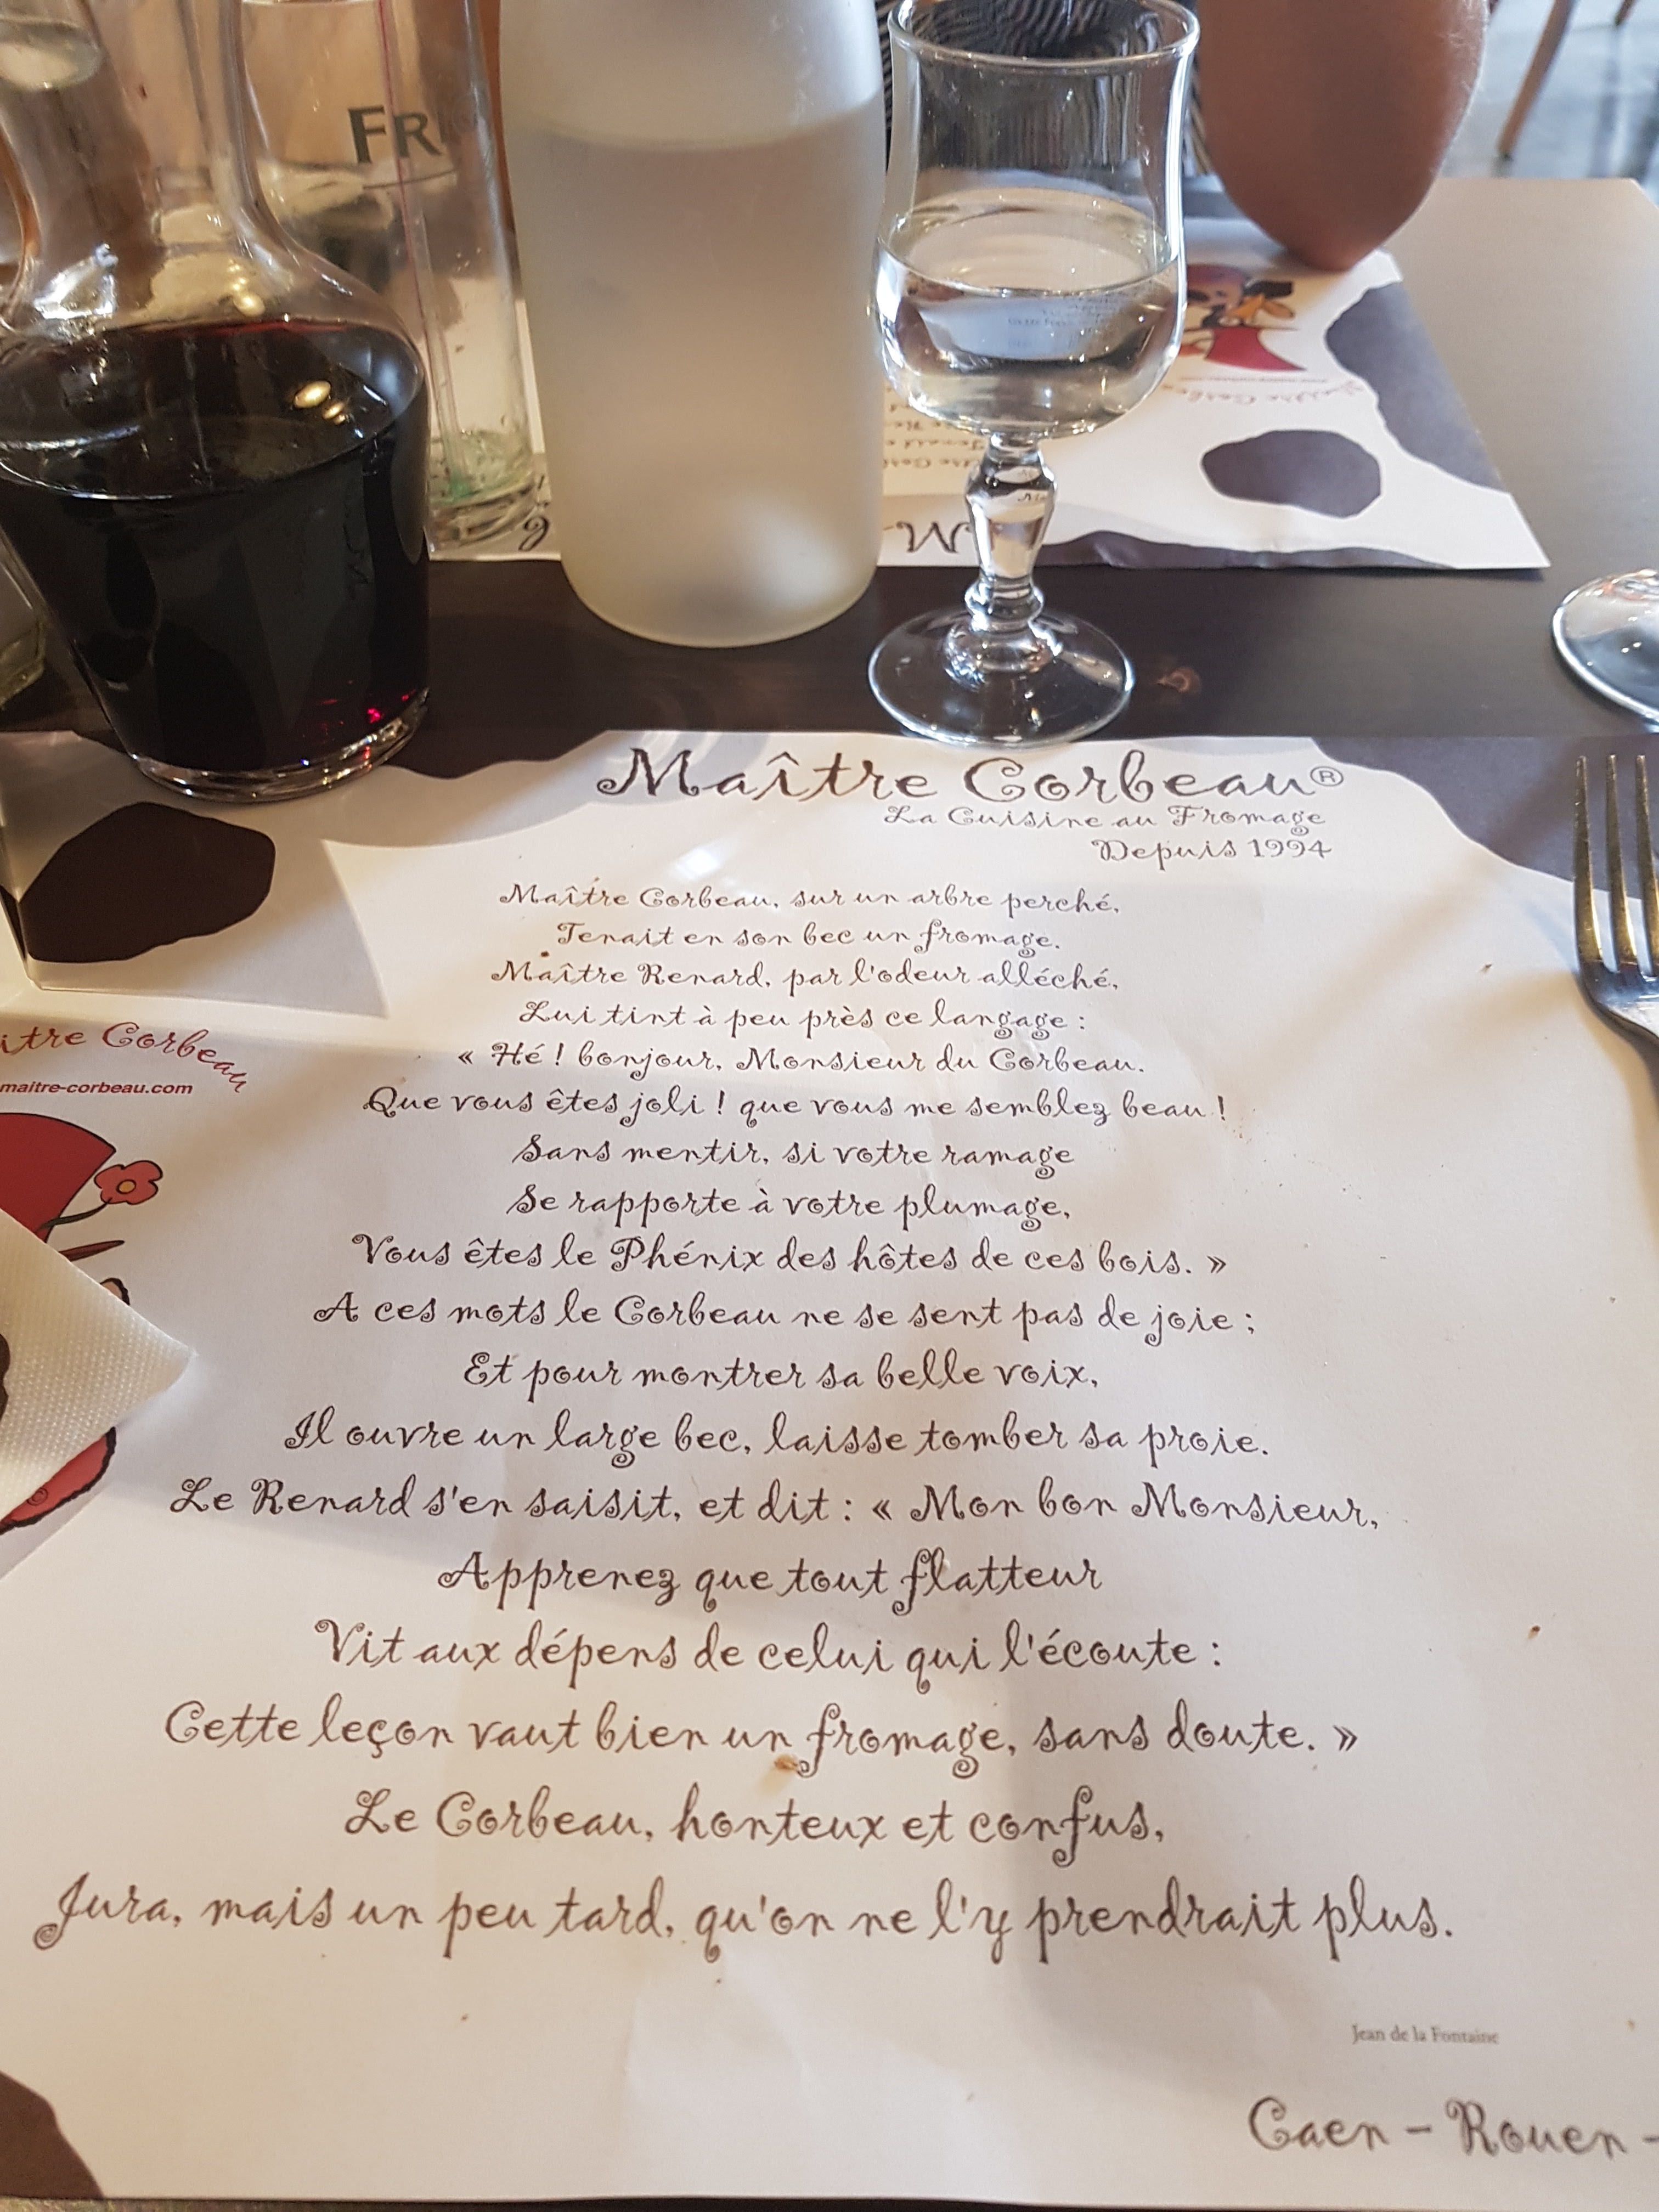 FR
Maître Corbeau®
La Cuisine au Fromage
Depuis 1994
Maître Corbeau, sur un arbre perché,
Tenait en son bec un fromage.
Maître Renard, par l'odeur alléché,
Lui tint à peu près ce langage :
« Hé ! bonjour, Monsieur du Corbeau.
Que vous êtes joli ! que vous me semblez beau !
Sans mentir, si votre ramage
Se rapporte à votre plumage,
Vous êtes le Phénix des hôtes de ces bois. »
A ces mots le Corbeau ne se sent pas de joie ;
Et pour montrer sa belle voix,
Il ouvre un large bec, laisse tomber sa proie.
Le Renard s'en saisit, et dit : « Mon bon Monsieur,
Apprenez que tout flatteur
Vit aux dépens de celui qui l'écoute :
Cette leçon vaut bien un fromage, sans doute. »
Le Corbeau, honteux et confus,
Jura, mais un peu tard, qu'on ne l'y prendrait plus.
Jean de la Fontaine
Caen - Rouen -
itre Corbeau
maitre-corbeau.com